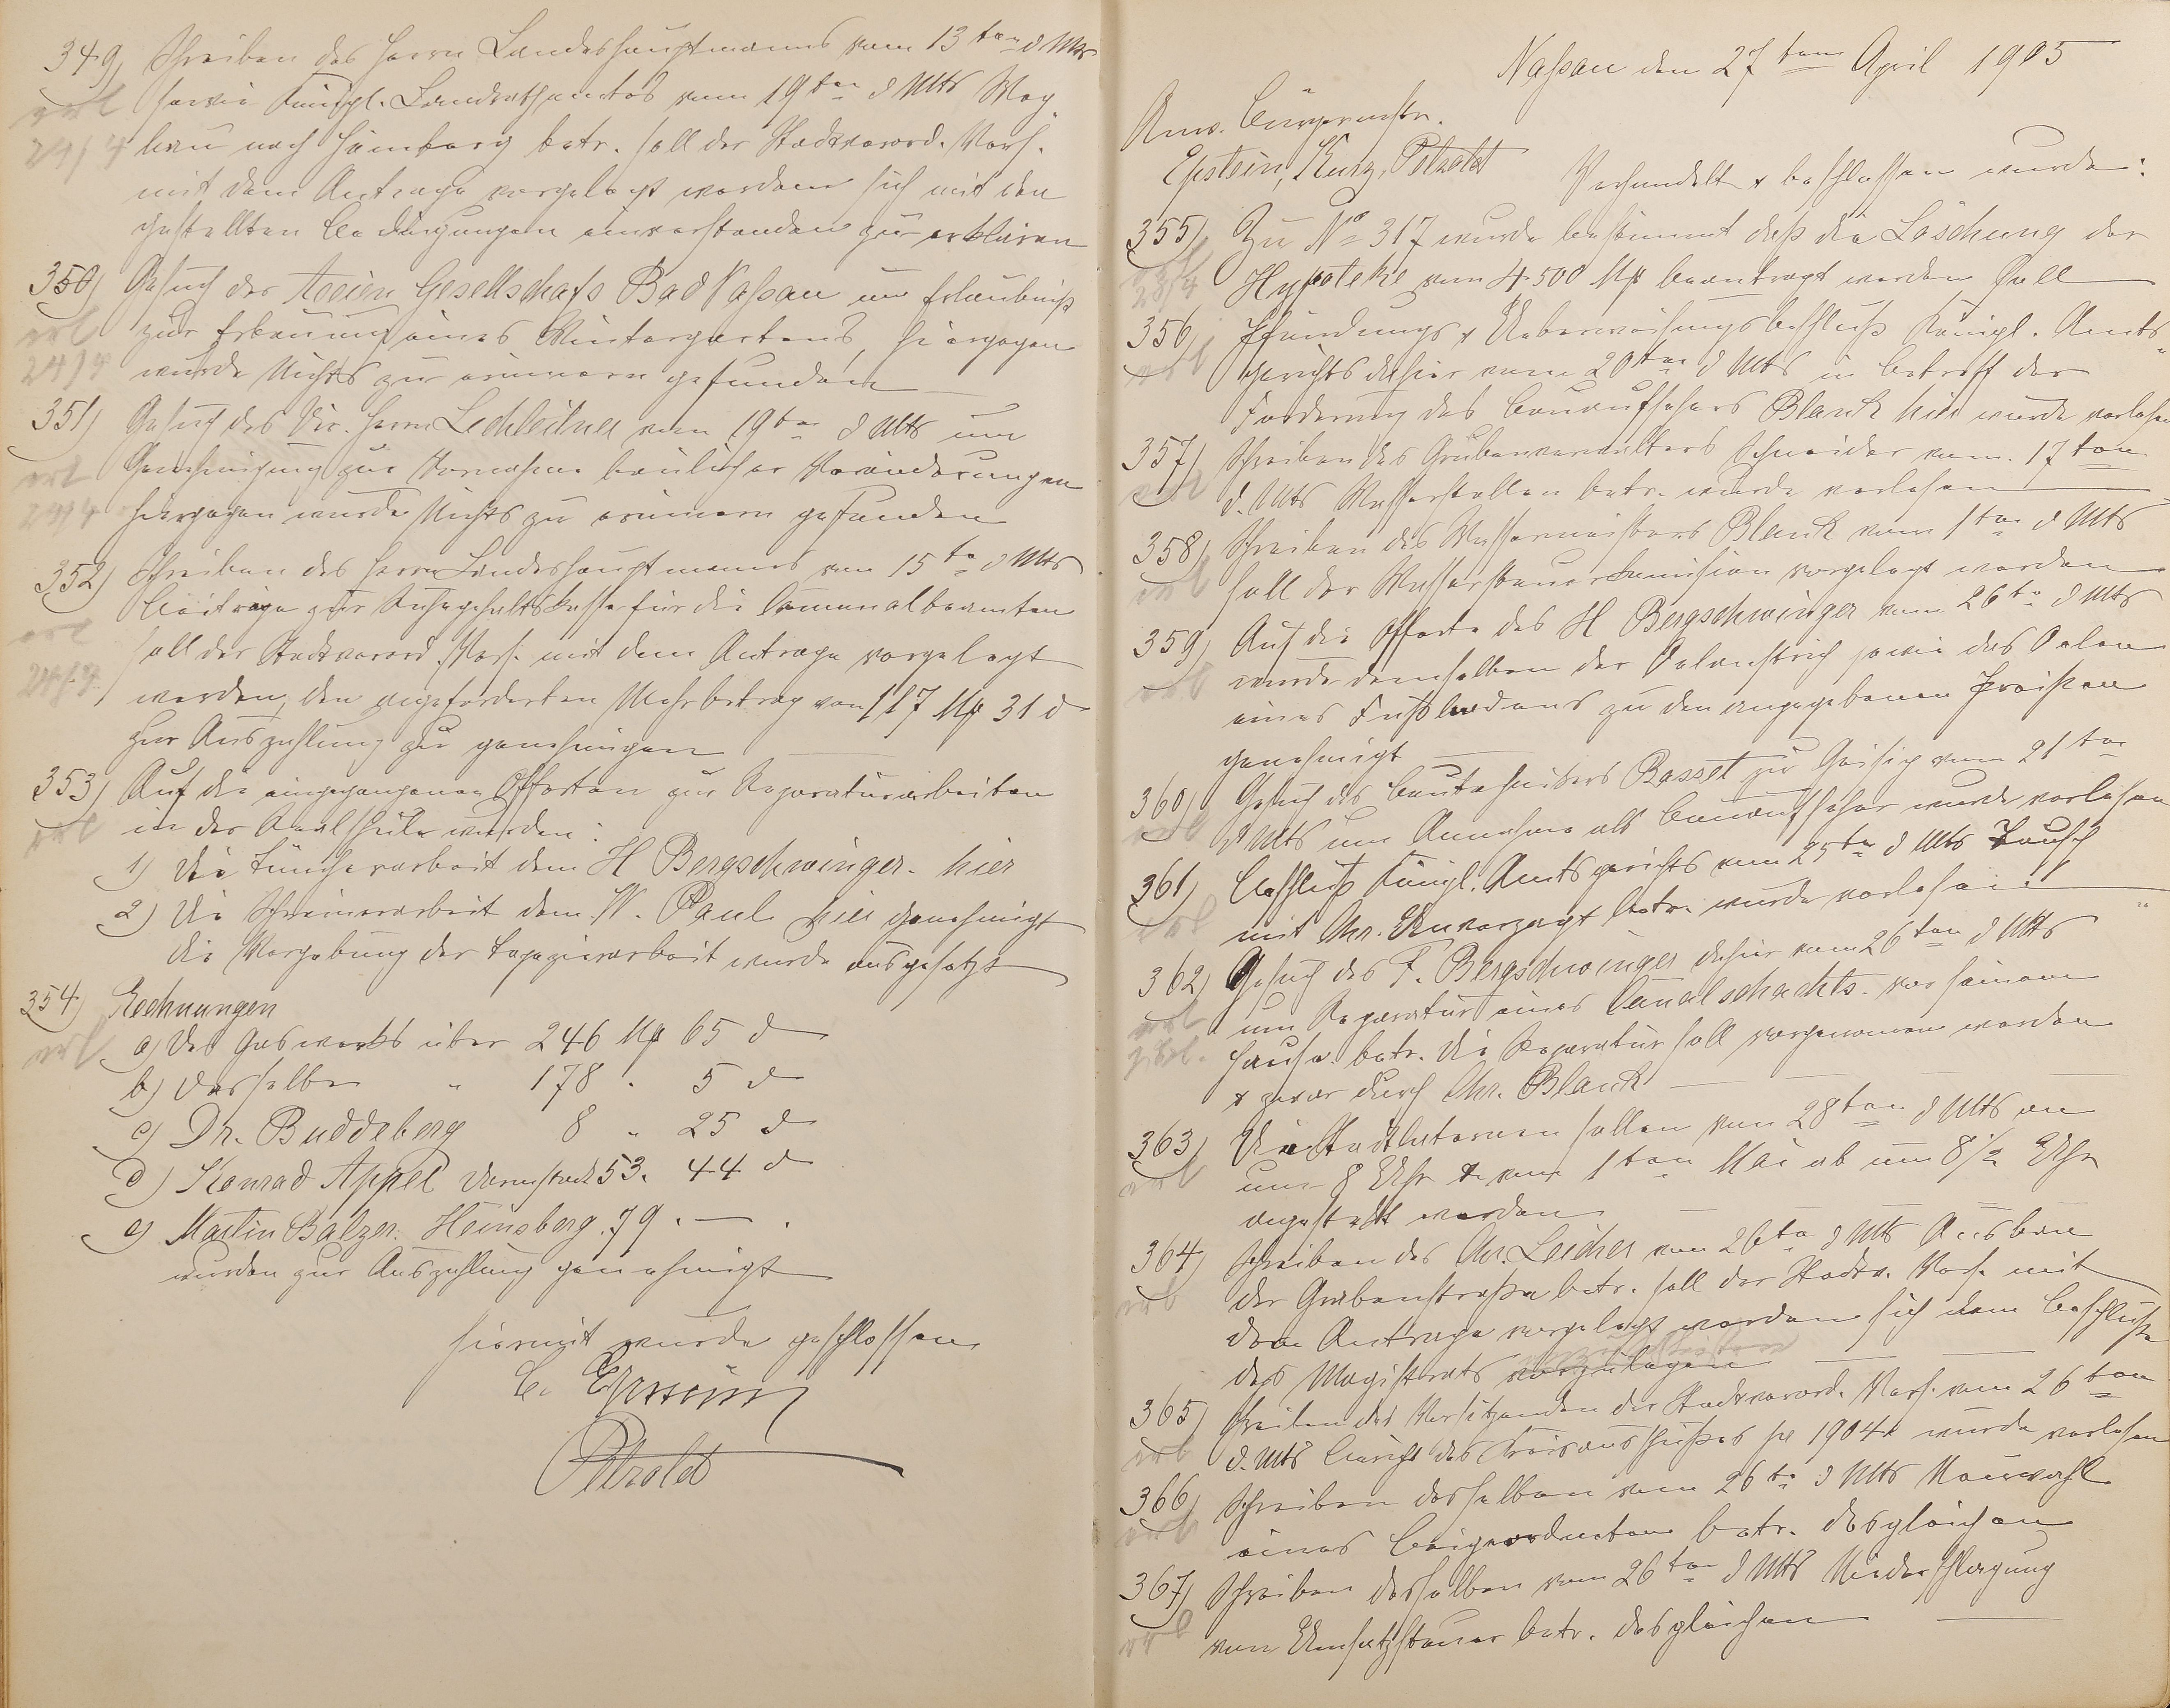 349) Schreiben des Herrn Landeshauptmanns vom 13ten d Mts
sowie Königl. Landrathsamtes vom 19ten d Mts Weg
erl
24/4
bau nach Homberg betr. soll der Stadtverord. Vers.
mit dem Antrage vorgelegt werden sich mit den
gestellten Bedingungen einverstanden zu erklären
350) Gesuch der Actien Gesellschafs Bad Naßau um Erlaubniß
erl
24/4
zur Erbauung eines Wintergartens, hiergegen
wurde Nichts zu erinnern gefunden
351) Gesuch des Dir. Herrn Lechleitner vom 19ten d Mts um
erl
24/4
Genehmigung zur Vornahme baulicher Veränderungen
hiergegen wurde Nichts zu erinnern gefunden
352) Schreiben des Herrn Landeshauptmanns vom 15te d Mts
erl
24/4
Beiträge zur Ruhegehaltskasse für die Comunalbeamten
soll der Stadtverord. Vers. mit dem Antrage vorgelegt
werden, den angeforderten Mehrbetrag von 117 Mk 31 d
zur Auszahlung zu genehmigen
353) Auf die eingegangenen Offerten zur Reparaturarbeiten
erl
in der Realschule wurden:
1) die Tüncherarbeit dem H Bergschwinger. hier
2) die Schreinerarbeit dem W. Paul hier genehmigt
die Vergebung der Tapezierarbeit wurde ausgesetzt
354) Rechnungen
erl
a) des Gaswerks über 246 Mk 65 d
b) desselben " 178 . 5 d
c) Dr. Buddeberg 8 " 25 d
d) Konrad Appel Darmstadt 53. 44 d
e) Martin Balzer. Heinsberg. 79 . — .
wurden zur Auszahlung genehmigt
hiermit wurde geschlossen
C. Epstein
Petzoldt
Naßau den 27ten April 1905
Anw. Bürgermstr.
Epstein, Kurz, Petzoldt
Verhandelt & beschlossen wurde:
355) Zu No 317 wurde bestimmt daß die Löschung der
erl
28/4
Hypoteke vom 4500 Mk beantragt werden soll
356) Pfändungs & Ueberweisungsbeschluß Königl. Amts-
erl
gerichts dahier vom 20ten d Mts in Betreff der
Forderung des Bauaufsehers Blank hier wurde verlesen
357) Schreiben des Grubenverwalters Schneider vom. 17ten
erl
d. Mts Wasserstollen betr. wurde verlesen
358) Schreiben des Wassermeisters Blank vom 1ten d Mts
erl
soll der Wassersteuerkomission vorgelegt werden
359) Auf die Offerte des H Bergschwinger vom 26te d Mts
erl
wurde demselben der Oelanstrich sowie das Oelen
eines Fußbodens zu den angegebenen Preißen
genehmigt
360) Gesuch des Bautechnikers Basset zu Geisig vom 21ten
erl
d Mts um Annahme als Bauaufseher wurde verlesen
361) Beschluß Königl. Amtsgerichts vom 25te d Mts Tausch
erl
mit Chr. Unverzagt betr. wurde verlesen
362) Gesuch des F. Bergschwinger dahier vom 26ten d Mts
erl
um Reparatur eines Canalschachts vor seinem
Hause betr. die Reparatur soll vorgenommen werden
& zwar durch Chr. Blank
363) Die Stadtlaternen sollen vom 28ten d Mts an
erl
um 8 Uhr & vom 1ten Mai ab um 8 1/2 Uhr
angesteckt werden
364) Schreiben des Chr. Leicher vom 26te d Mts Ausbau
erl
der Grabenstraße betr. soll der Stadtv. Vers. mit
dem Antrage vorgelegt werden sich dem Beschluße
des Magistrats vorzulegen
365) Schreiben des Vorsitzenden der Stadtverord. Vers. vom 26ten
erl
d. Mts Bericht des Kreisausschußes pr 1904 wurde verlesen
366) Schreiben desselben vom 26te d Mts Neuwahl
erl
eines Beigeordneten betr. desgleichen
367) Schreiben desselben vom 26ten d Mts Niederschlagung
erl
von Umsatzsteuer betr. desgleichen